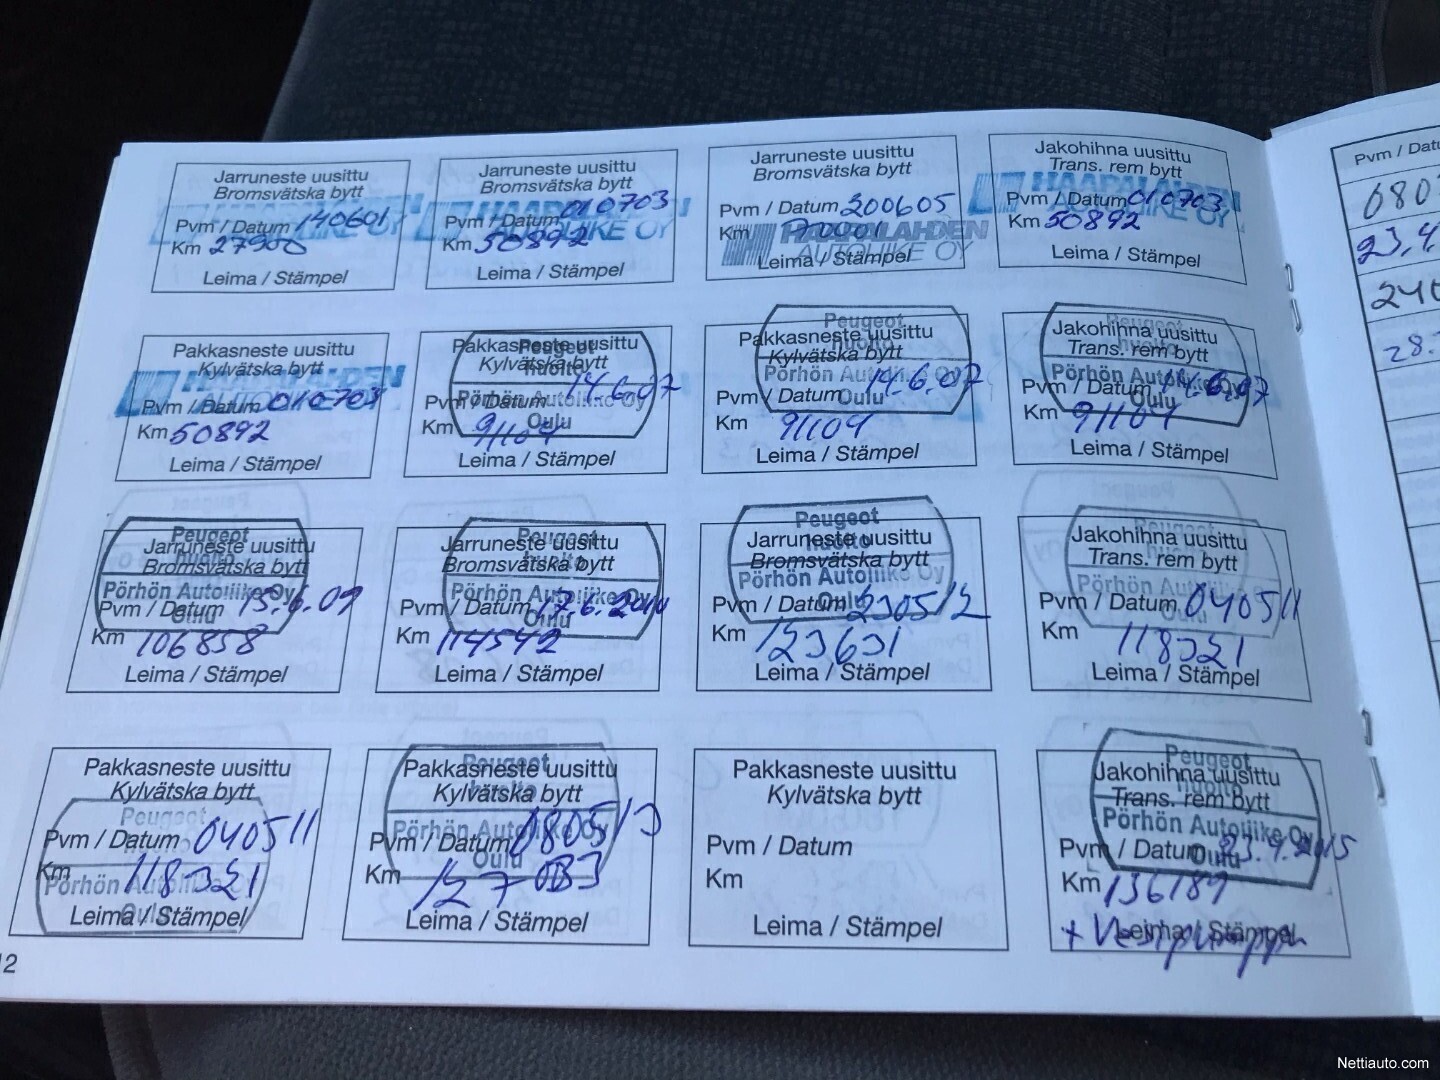 Jarruneste uusittu
Bromsvätska bytt
Pvm / Datum 140601
Km 27900
Leima / Stämpel
Jarruneste uusittu
Bromsvätska bytt
HAAPALAHDEN
Pvm / Datum 010703
AUTOLIIKE OY
Km 50892
Leima / Stämpel
Jarruneste uusittu
Bromsvätska bytt
Pvm / Datum 200605
Km
HAAPALAHDEN
AUTOLIIKE OY
Leima / Stämpel
Jakohihna uusittu
Trans. rem bytt
HAAPALAHDEN
Pvm / Datum 010703
Km 50892
Leima / Stämpel
Pvm / Datu
Pakkasneste uusittu
Kylvätska bytt
HAAPALAHDEN
Pvm / Datum 010703
Km 50892
Leima / Stämpel
Pakkasneste uusittu
Peugeot
Kylvätska bytt
huolto
Pvm / Datum 14.6.07
Pörhön Autoliike Oy
Oulu
Km 91104
Leima / Stämpel
Peugeot
Pakkasneste uusittu
Kylvätska bytt
Pörhön Autoliike Oy
Pvm / Datum 14.6.07
Oulu
Km 91104
Leima / Stämpel
Jakohihna uusittu
Trans. rem bytt
Pörhön Autoliike Oy
Pvm / Datum 14.6.07
Oulu
Km 91104
Leima / Stämpel
Peugeot
Jarruneste uusittu
Bromsvätska bytt
Pörhön Autoliike Oy
Pvm / Datum 15.6.09
Oulu
Km 106858
Leima / Stämpel
Peugeot
Jarruneste uusittu
Bromsvätska bytt
Pörhön Autoliike Oy
Pvm / Datum 17.6.2010
Oulu
Km 114542
Leima / Stämpel
Peugeot
Jarruneste uusittu
huolto
Bromsvätska bytt
Pörhön Autoliike Oy
Pvm / Datum 230512
Oulu
Km 123631
Leima / Stämpel
Peugeot
Jakohihna uusittu
Trans. rem bytt
Pörhön Autoliike Oy
Pvm / Datum 040511
Km 118321
Leima / Stämpel
Pakkasneste uusittu
Kylvätska bytt
Peugeot
Pvm / Datum 040511
Km 118321
Pörhön Autoliike Oy
Leima / Stämpel
Oulu
Peugeot
Pakkasneste uusittu
Kylvätska bytt
Pörhön Autoliike Oy
Pvm / Datum 080513
Oulu
Km 127083
Leima / Stämpel
Pakkasneste uusittu
Kylvätska bytt
Pvm / Datum
Km
Leima / Stämpel
Peugeot
Jakohihna uusittu
huolto
Trans. rem bytt
Pörhön Autoliike Oy
Pvm / Datum 23.9.2015
Oulu
Km 136189
Leima / Stämpel
+ Vesipumppu
Nettiauto.com